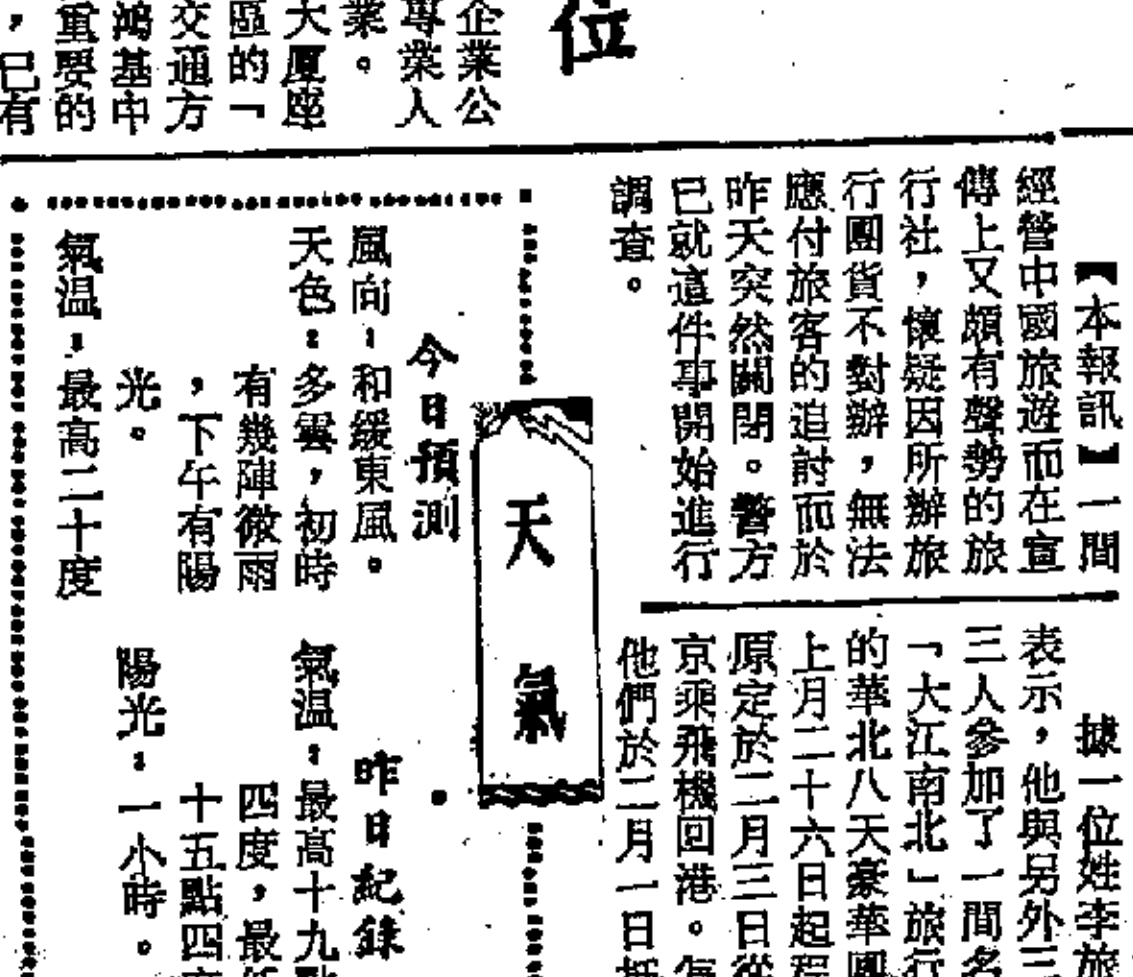 位
企業公
專業人
業。
大厦座
區的「
交通方
鴻基中
重要的
，已有
【本報訊】一間
經營中國旅遊而在宣
傳上又頗有聲勢的旅
行社，懷疑因所辦旅
行團貨不對辦，無法
應付旅客的追討而於
昨天突然關閉。警方
已就這件事開始進行
調查。
據一位姓李旅
表示，他與另外三
三人參加了一間名
「大江南北」旅行
的華北八天豪華團
上月二十六日起程
原定於二月三日從
京乘飛機回港。
他們於二月一日抵
天氣
今日預測
風向：和緩東風。
天色：多雲，初時
有幾陣微雨
，下午有陽
光。
氣温：最高二十度
昨日紀錄
氣温：最高十九點
四度，最低
十五點四度
陽光：一小時。